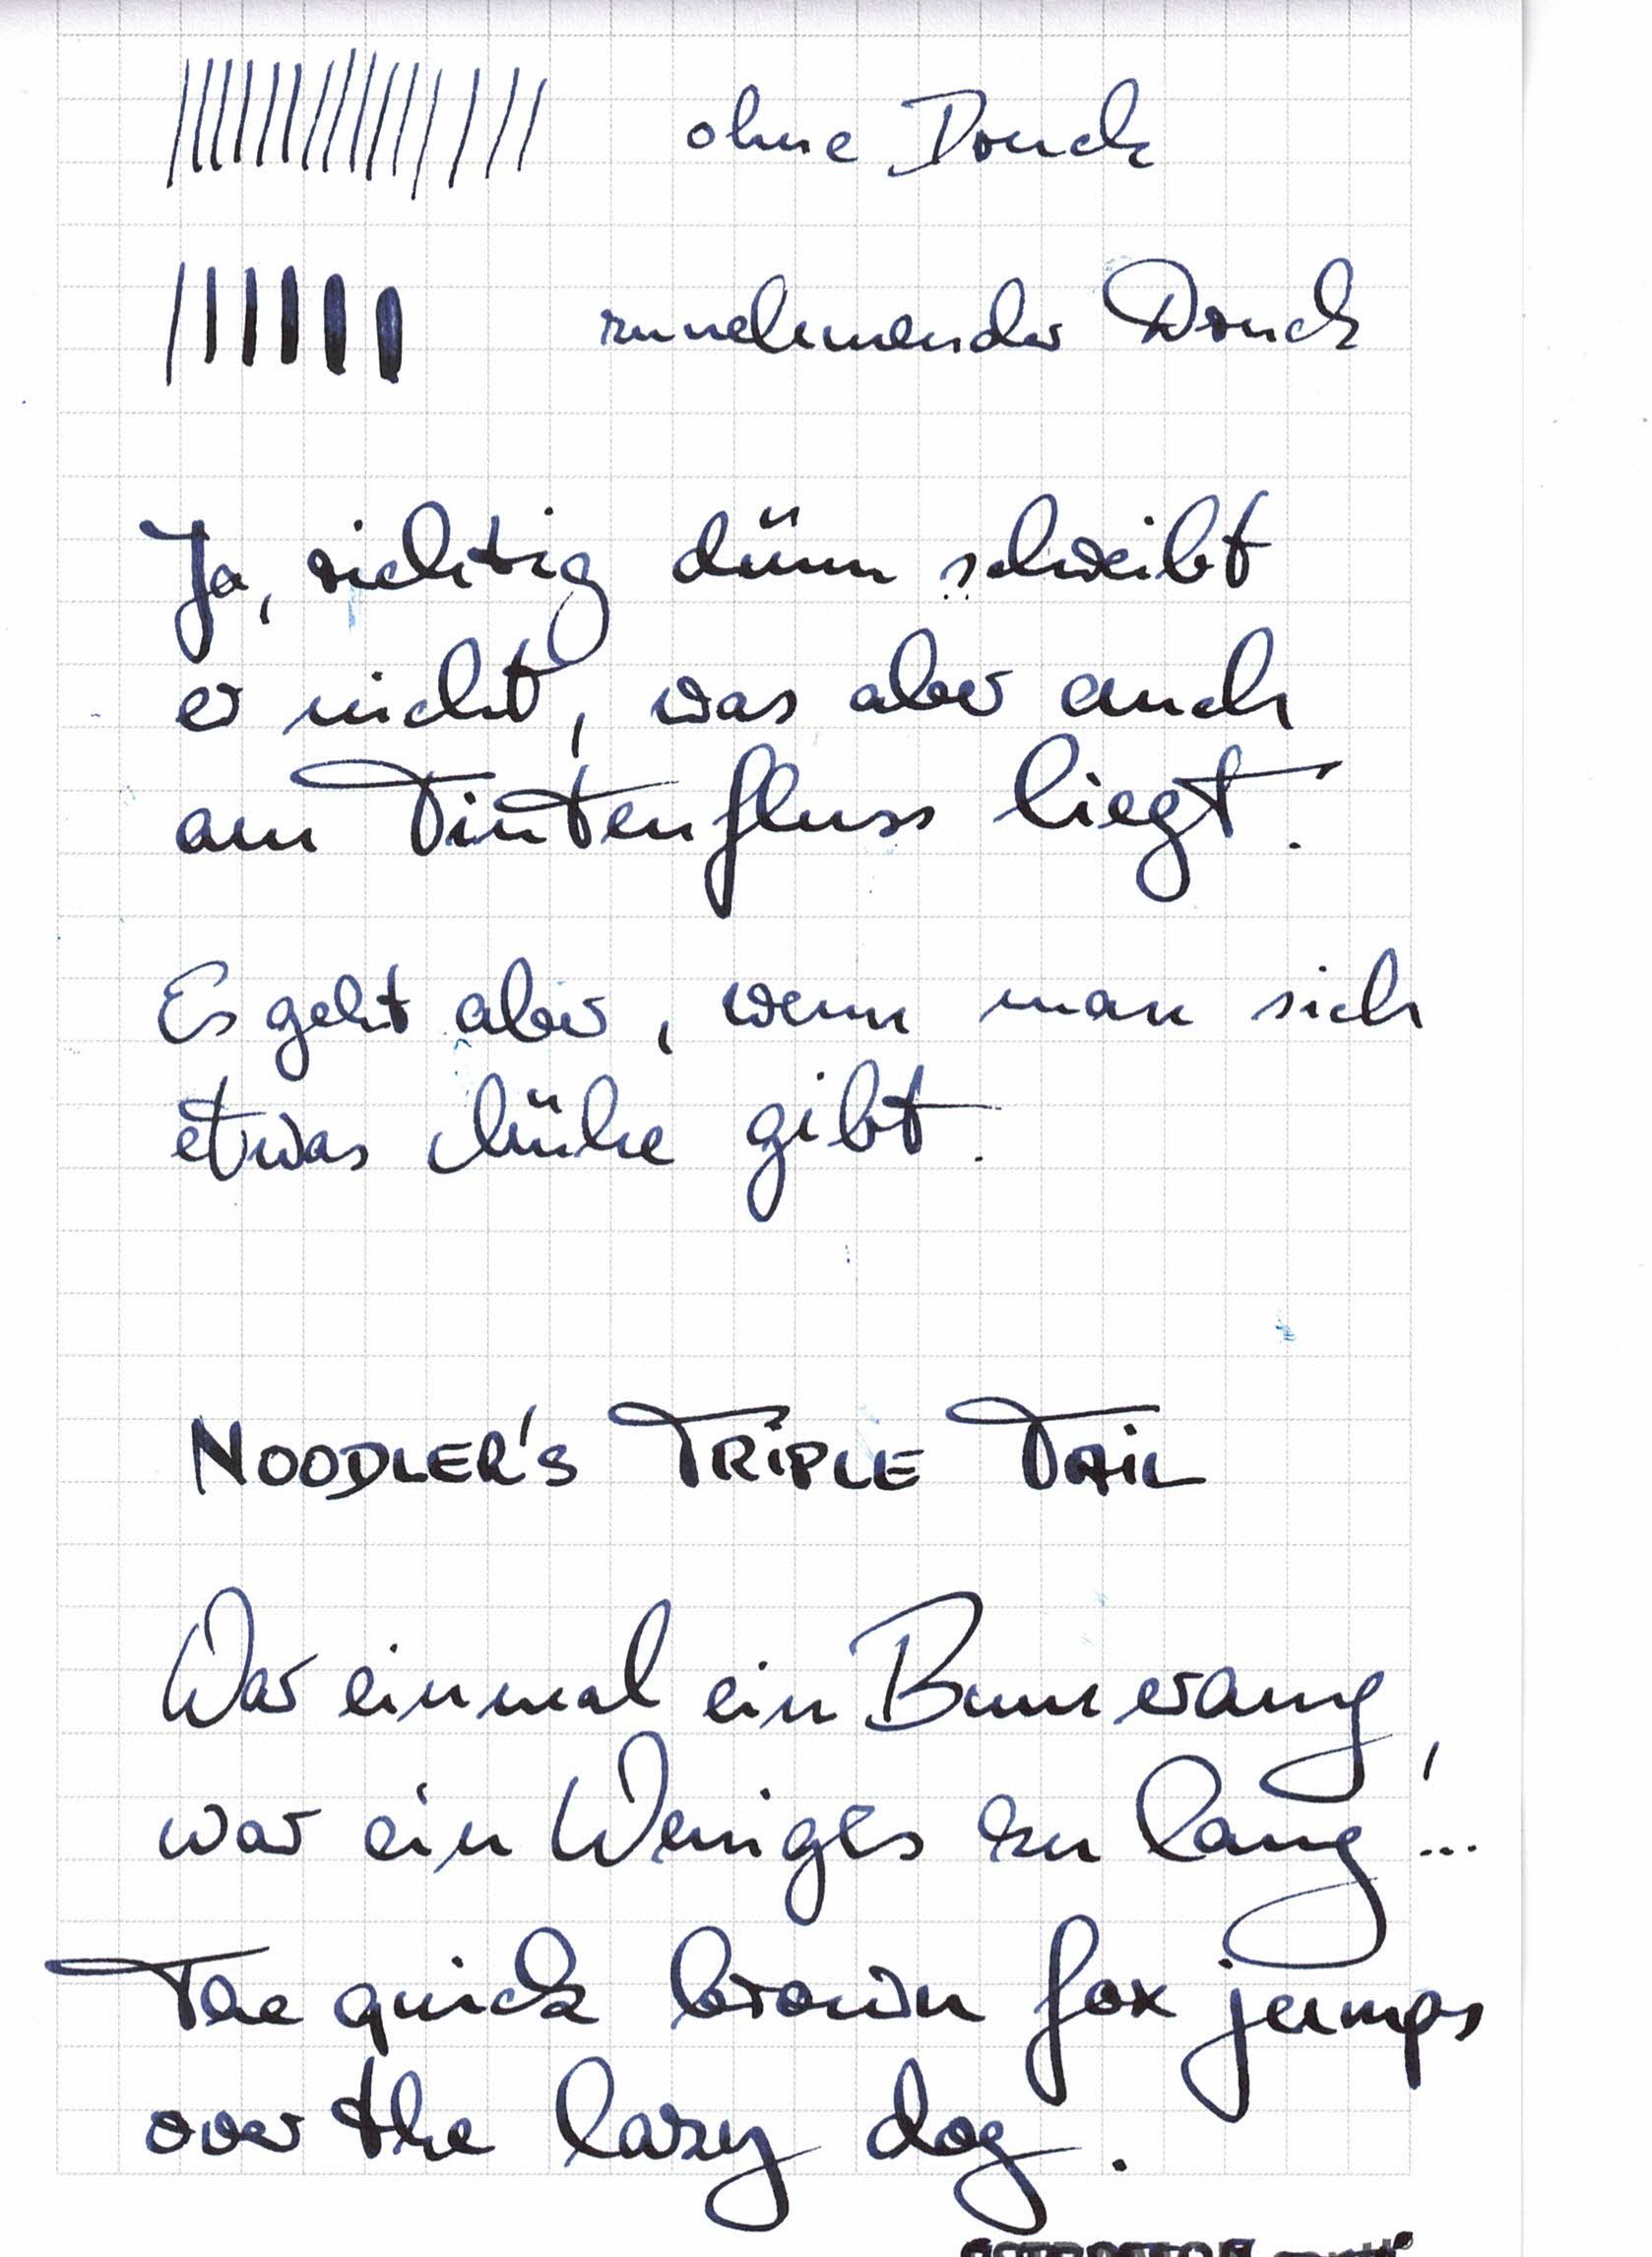 ohne Druck
zunehmender Druck
Ja, richtig dünn schreibt
er nicht, was aber auch
am Tintenfluss liegt.
Es geht aber, wenn man sich
etwas Mühe gibt.
NOODLER'S TRiPLE TAiL
War einmal ein Bumerang,
war ein Weniges zu lang...
The quick brown fox jumps
over the lazy dog.